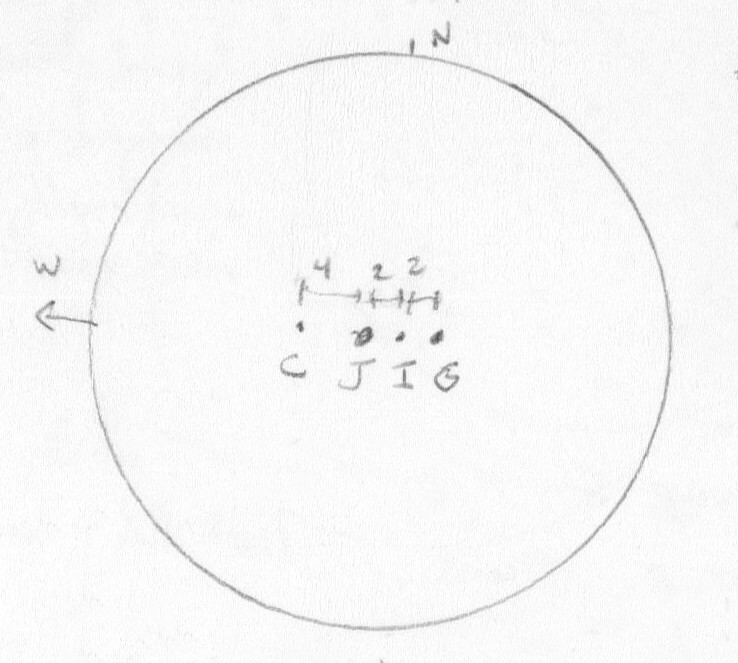 N
W
4 2 2
C J I G